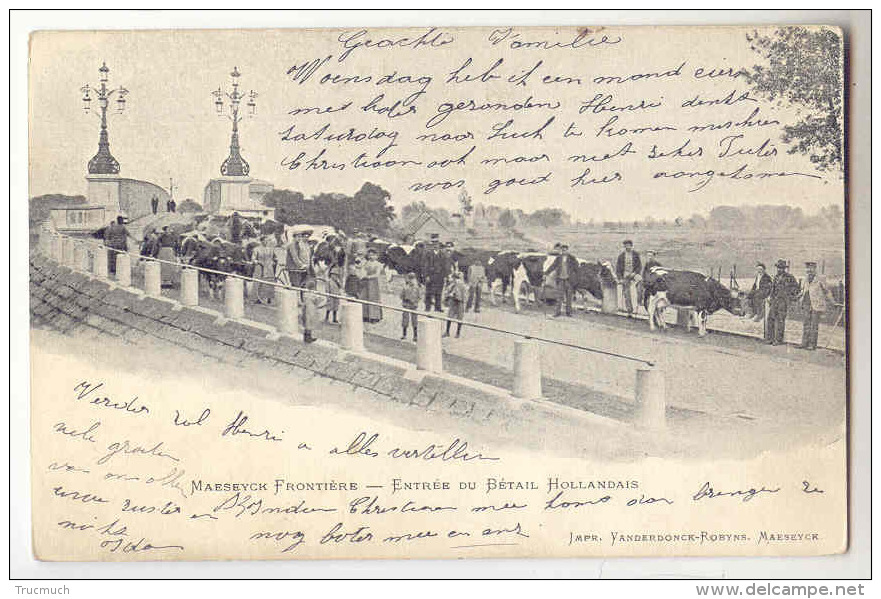 Geachte Familie
Woensdag heb ik een mand eier
met boter gezonden Henri denkt
Saturdag naar Luik te komen misschien
Christiaan ook maar niet seker
was goed hier aangekomen
Verder zal Henri u alles vertellen
vele groeten
van ons allen
MAESEYCK FRONTIÈRE — ENTRÉE DU BÉTAIL HOLLANDAIS
uwe zuster en Indien Christiaan mee komt dan brengen ze
nog boter mee en anz
nicht
IMPR. VANDERDONCK-ROBYNS. MAESEYCK
Trucmuch
www.delcampe.net